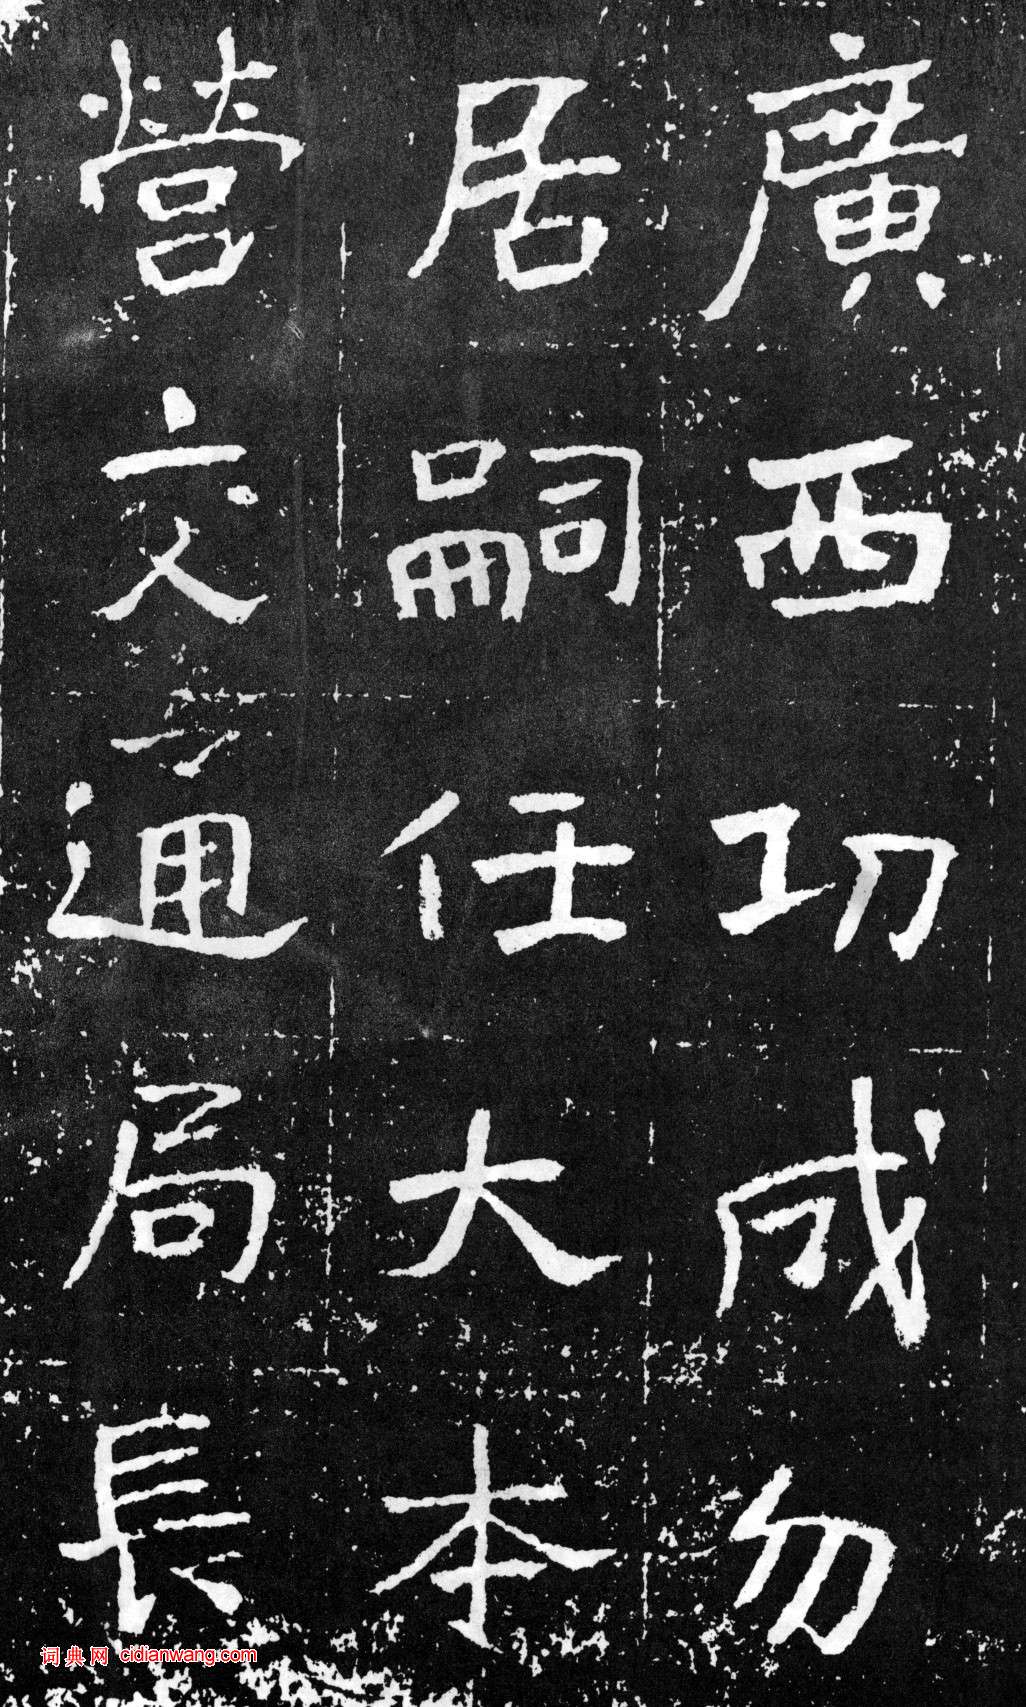 廣西功成勿
居嗣任大本
營交通局長
词典网 cidianwang.com